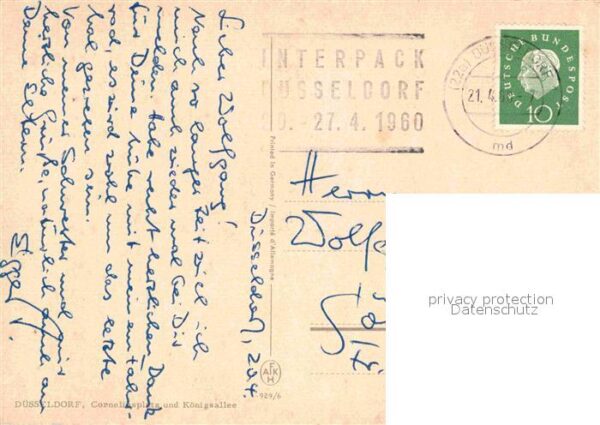 Düsseldorf, 20.4.
Lieber Wolfgang!
Nach so langer Zeit will ich
mich auch wieder mal bei Dir
melden. Habe recht herzlichen Dank
für Deine Mühe mit meinem Fahr-
rad, es wird wohl um das letzte
Mal gewesen sein.
Von meiner Schwester und mir
herzliche Grüße, natürlich auch an
Deine Eltern.
INTERPACK
DÜSSELDORF
20. - 27.4.1960
(22a) DÜSSELDORF
21.4.
md
DEUTSCHE BUNDESPOST
10
Printed in Germany / Importé d'Allemagne
Herrn
privacy protection
Datenschutz
Fr.
AFKH
929/6
DÜSSELDORF, Corneliusplatz und Königsallee